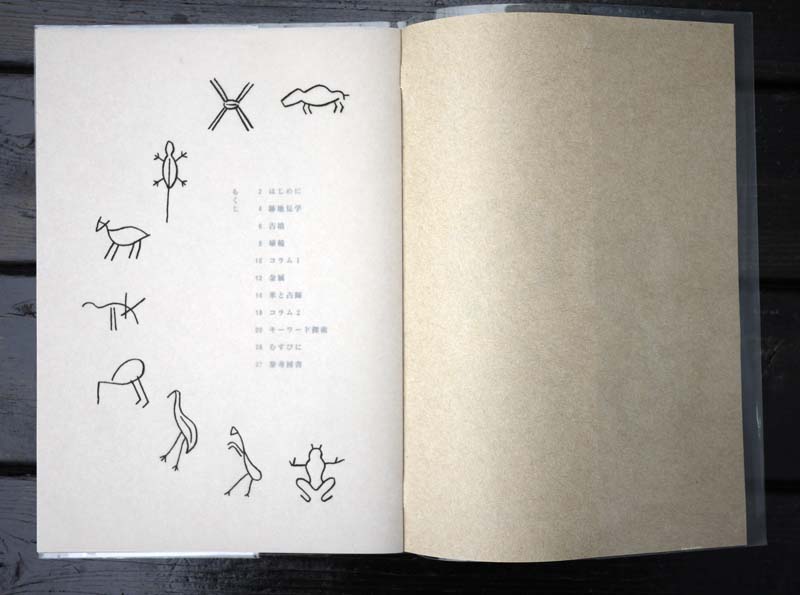 もくじ
2 はじめに
4 跡地見学
6 古墳
8 埴輪
10 コラム1
12 金属
14 革と占卜
18 コラム2
20 キーワード探索
26 むすびに
27 参考図書